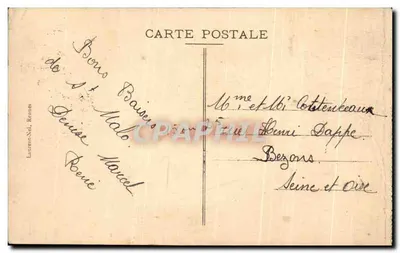 CARTE POSTALE
Bons Baisers
de St Malo
Denise Marcel
René
Mme et Mr
5 rue Henri Dappe
Bezons
Seine et Oise
Rennes